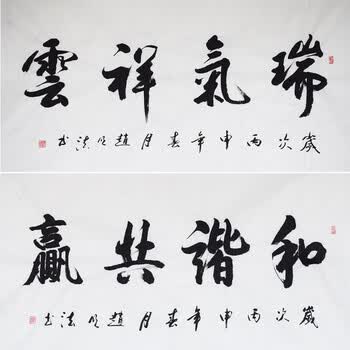 瑞氣祥雲
歲次丙申年春月趙法书
和諧共贏
歲次丙申年春月趙法书